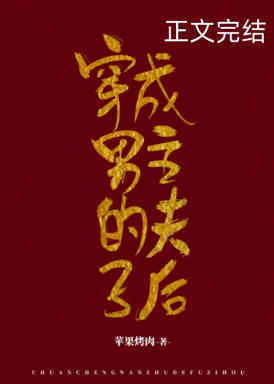 正文完结
穿成
男主
的夫
子后
苹果烤肉-著-
CHUANCHENGNANZHUDEFUZIHOU